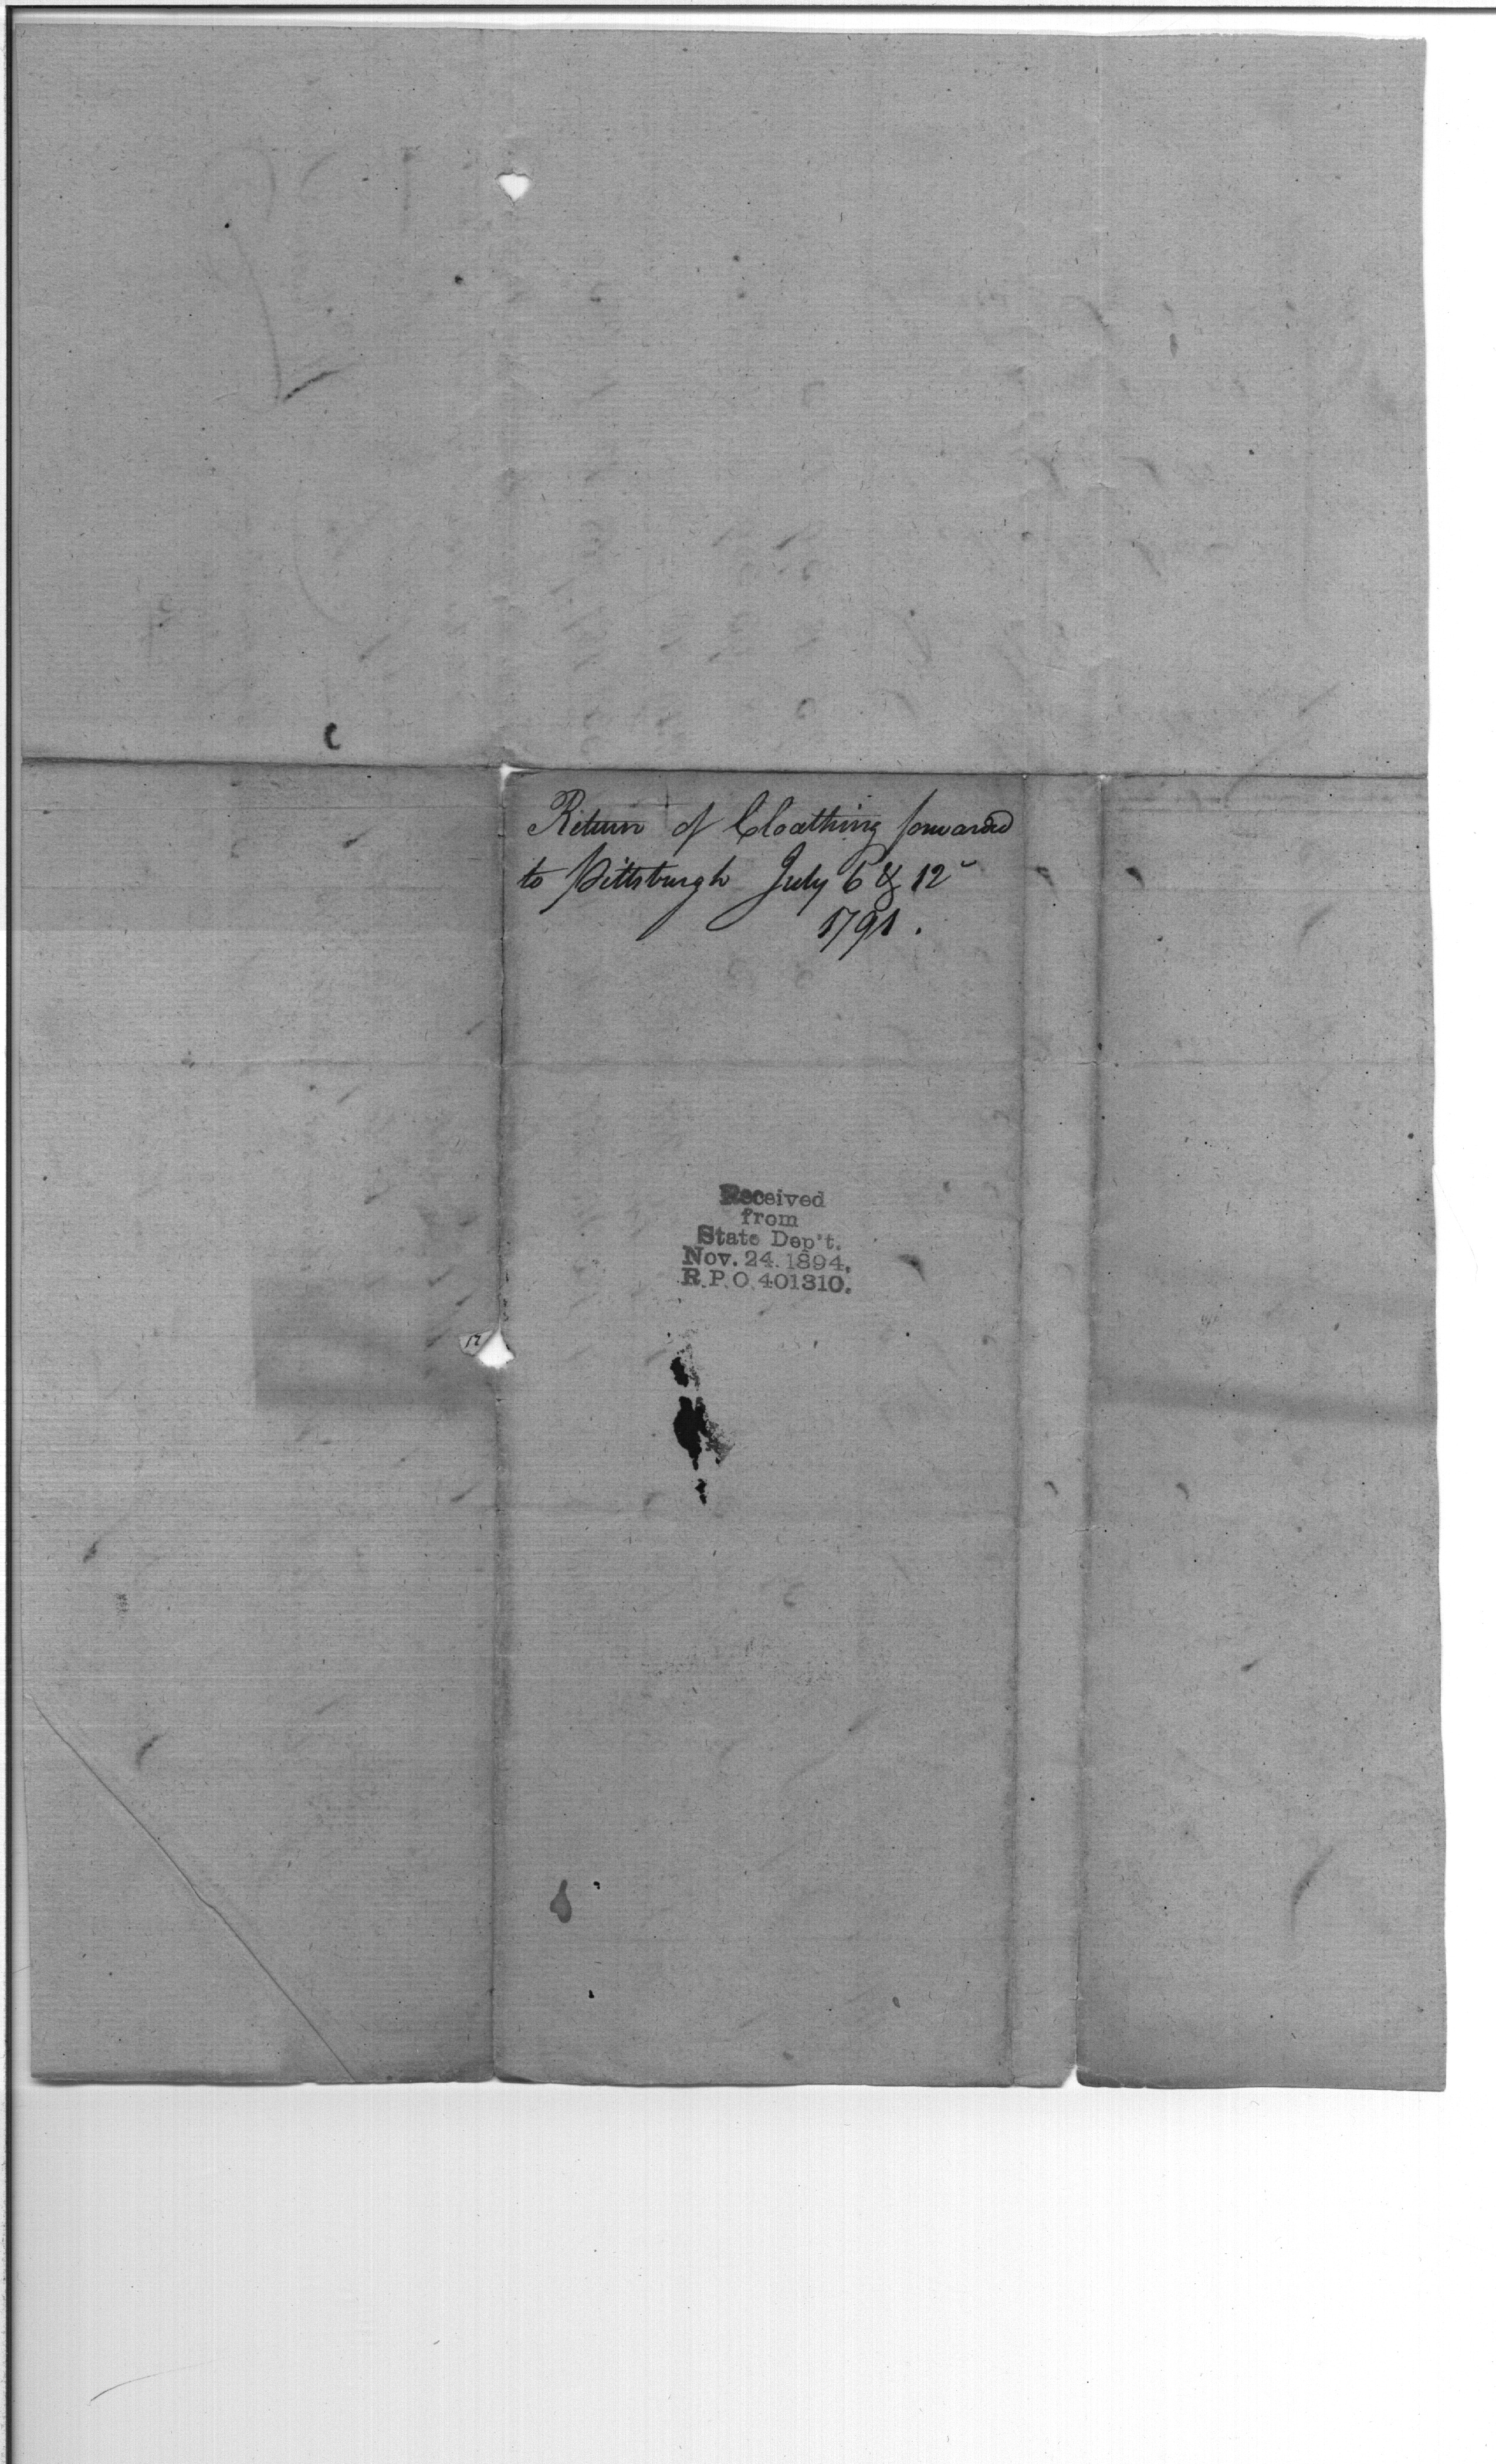 Return of Cloathing forwarded
to Pittsburgh July 6 & 12
1791.
Received
from
State Dep't.
Nov. 24. 1894.
R.P.O. 401310.